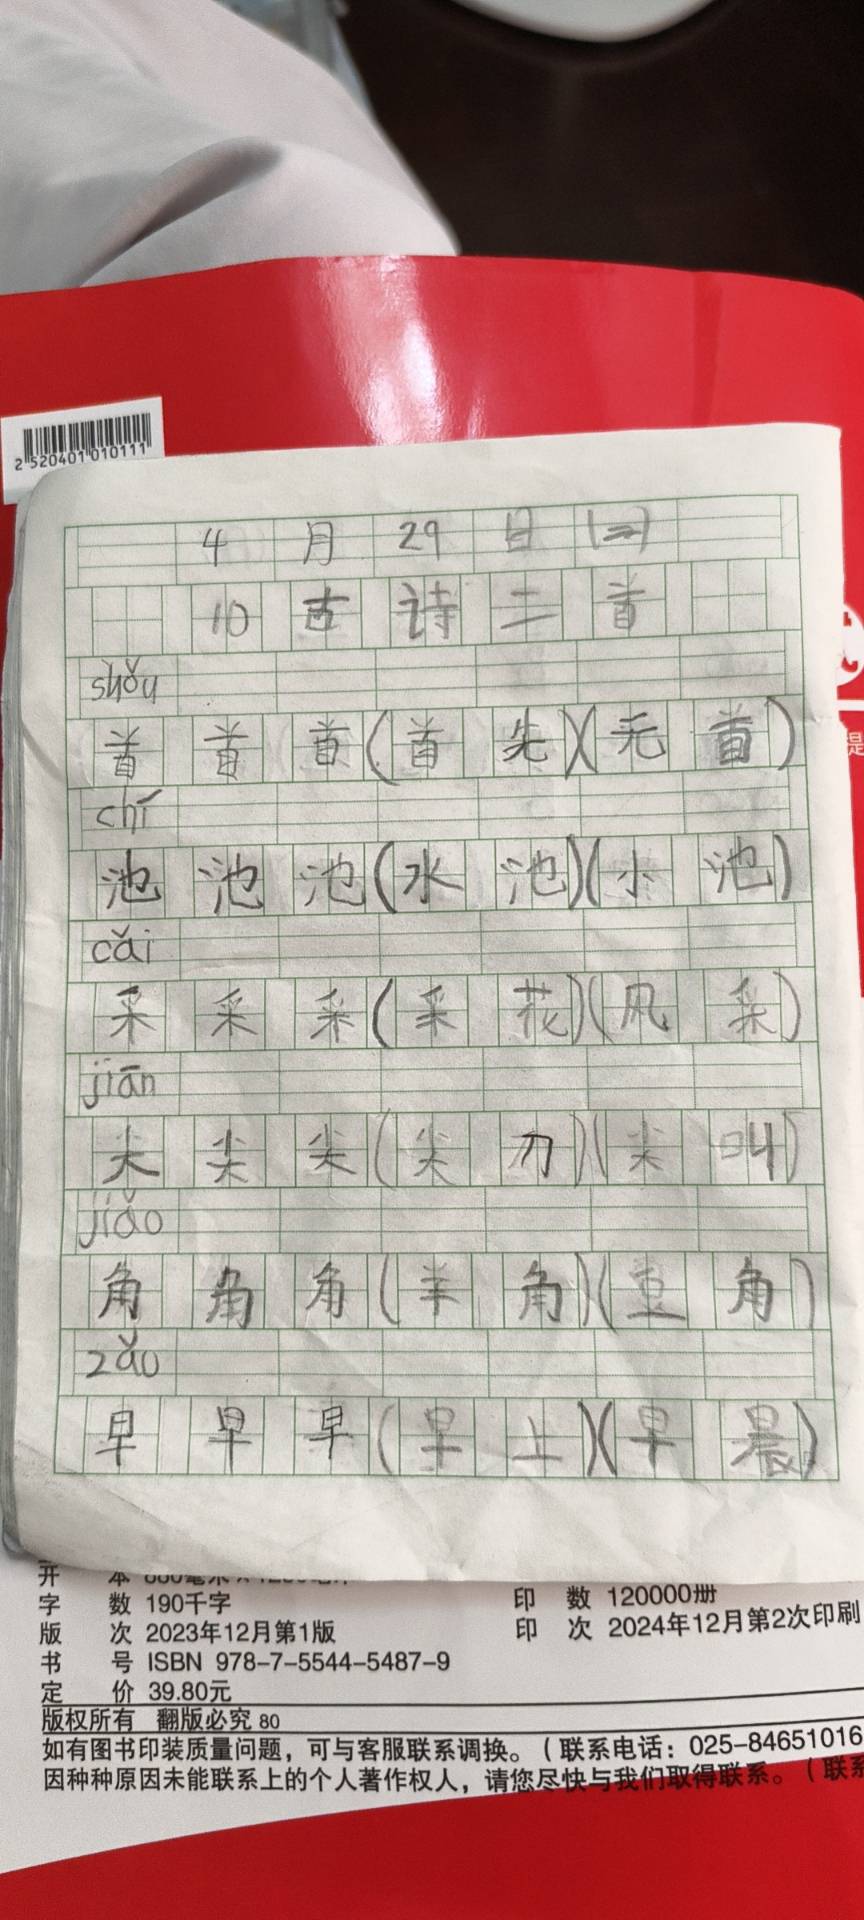 2 520401 010111
4月29日(二)
10古诗二首
shǒu
首首首(首先)(无首)
chí
池池池(水池)(小池)
cǎi
采采采(采花)(风采)
jiān
尖尖尖(尖刀)(尖叫)
jiǎo
角角角(羊角)(直角)
zǎo
早早早(早上)(早晨)
提
开 本
字 数 190千字 印 数 120000册
版 次 2023年12月第1版 印 次 2024年12月第2次印刷
书 号 ISBN 978-7-5544-5487-9
定 价 39.80元
版权所有 翻版必究 80
如有图书印装质量问题，可与客服联系调换。（联系电话：025-84651016
因种种原因未能联系上的个人著作权人，请您尽快与我们取得联系。（联系